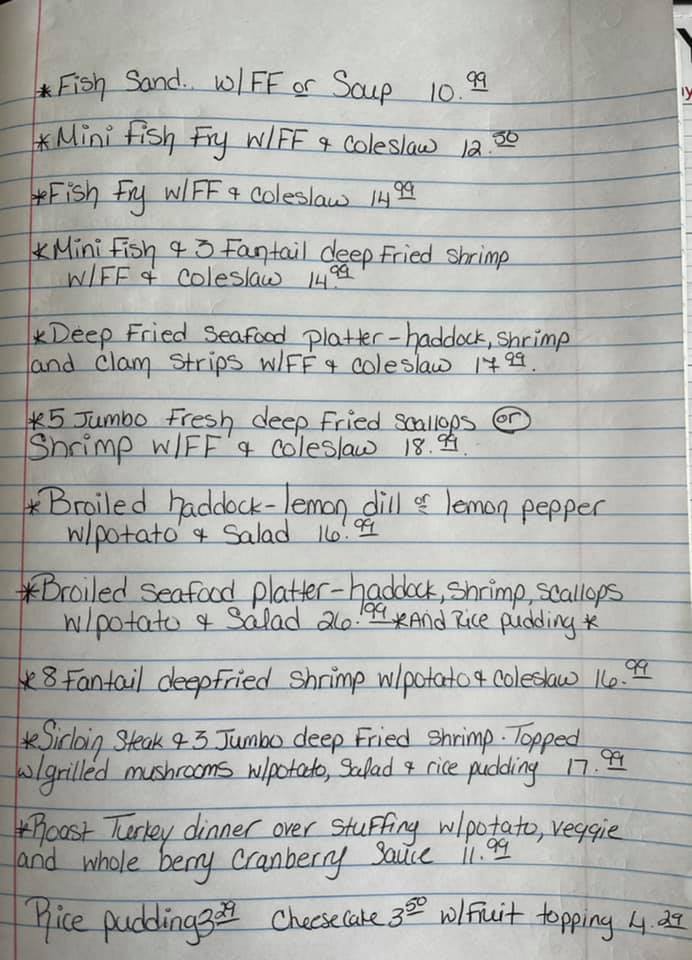 *Fish Sand. w/FF or Soup 10.99
*Mini Fish Fry w/FF & coleslaw 12.50
*Fish Fry w/FF & coleslaw 14.99
*Mini Fish & 3 Fantail deep Fried shrimp
w/FF & coleslaw 14.99
*Deep Fried Seafood platter-haddock, shrimp
and clam strips w/FF & coleslaw 17.99.
*5 Jumbo Fresh deep Fried scallops or
Shrimp w/FF & coleslaw 18.99.
*Broiled haddock-lemon dill or lemon pepper
w/potato & Salad 16.99
*Broiled seafood platter-haddock, shrimp, scallops
w/potato & Salad 26.99 *And Rice pudding*
*8 Fantail deepfried shrimp w/potato & coleslaw 16.99
*Sirloin Steak & 3 Jumbo deep Fried shrimp. Topped
w/grilled mushrooms w/potato, Salad & rice pudding 17.99
*Roast Turkey dinner over stuffing w/potato, veggie
and whole berry Cranberry Sauce 11.99
Rice pudding 3.29 Cheesecake 3.50 w/Fruit topping 4.29